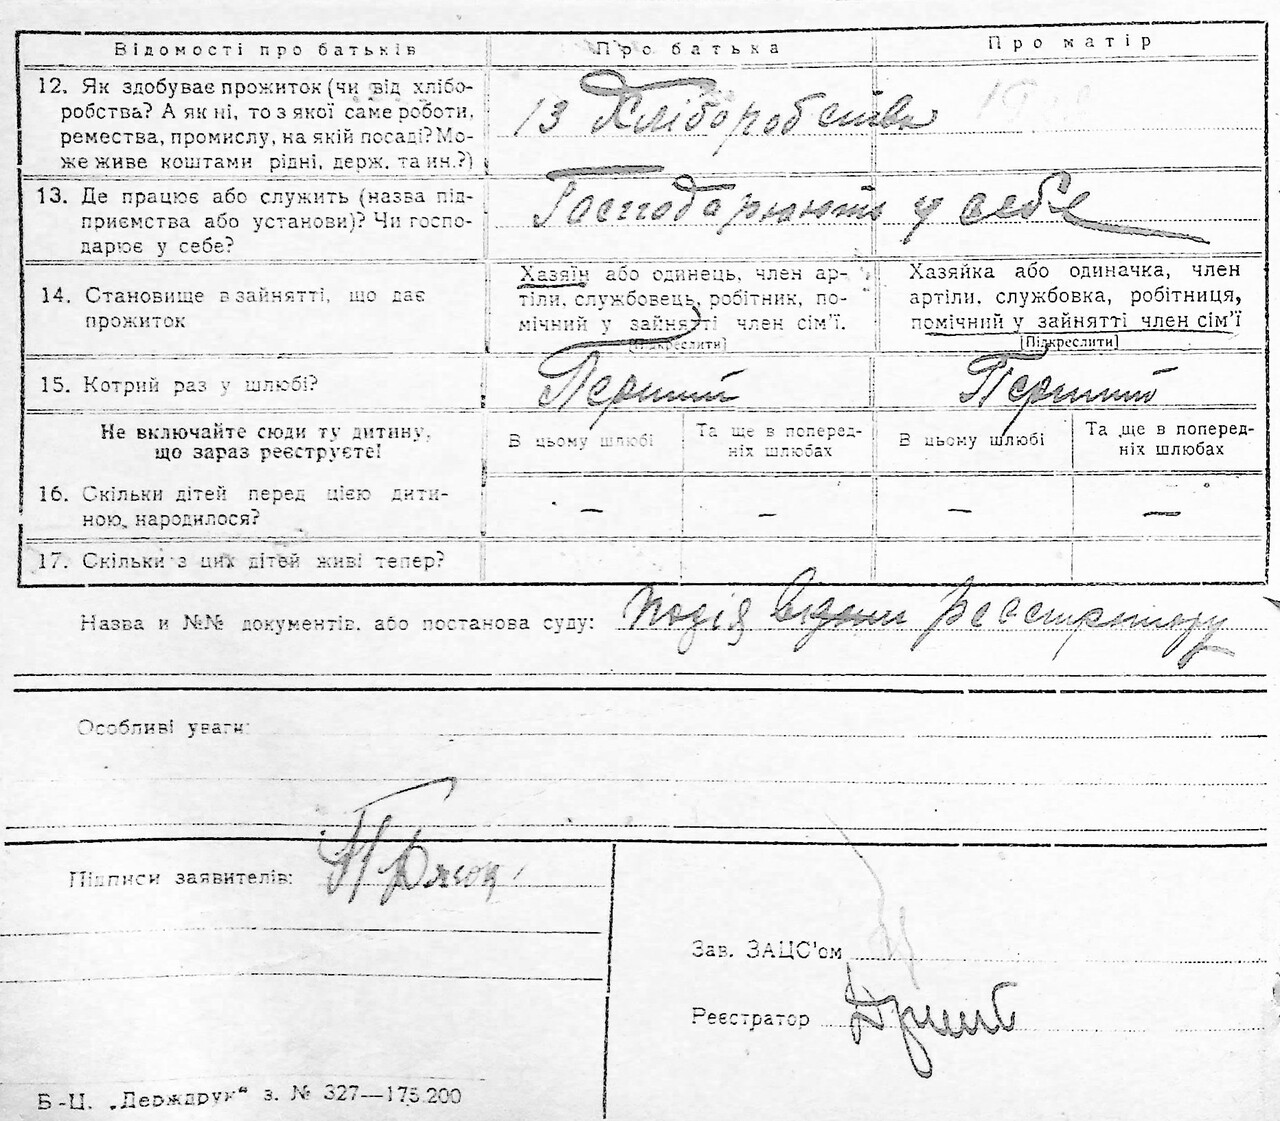 Відомості про батьків Про батька Про матір
12. Як здобуває прожиток (чи від хлібо-
робства? А як ні, то з якої саме роботи,
ремества, промислу, на якій посаді? Мо-
же живе коштами рідні, держ. та ин.?)
із Хліборобства
13. Де працює або служить (назва під-
приємства або установи)? Чи госпо-
дарює у себе?
Господарюють у себе
14. Становище в зайнятті, що дає
прожиток
Хазяїн або одинець, член ар-
тіли, службовець, робітник, по-
мічний у зайнятті член сім'ї.
[Підкреслити]
Хазяйка або одиначка, член
артіли, службовка, робітниця,
помічний у зайнятті член сім'ї
[Підкреслити]
15. Котрий раз у шлюбі? Перший Перший
Не включайте сюди ту дитину,
що зараз реєструєте!
В цьому шлюбі
Та ще в поперед-
ніх шлюбах
В цьому шлюбі
Та ще в поперед-
ніх шлюбах
16. Скільки дітей перед цією дити-
ною, народилося?
— — — —
17. Скільки з цих дітей живі тепер?
Назва и №№ документів, або постанова суду: подія відома реєстратору
Особливі уваги:
Підписи заявителів:
Зав. ЗАЦС'ом
Реєстратор
Б-Ц. „Держдрук“ з. № 327—175.200